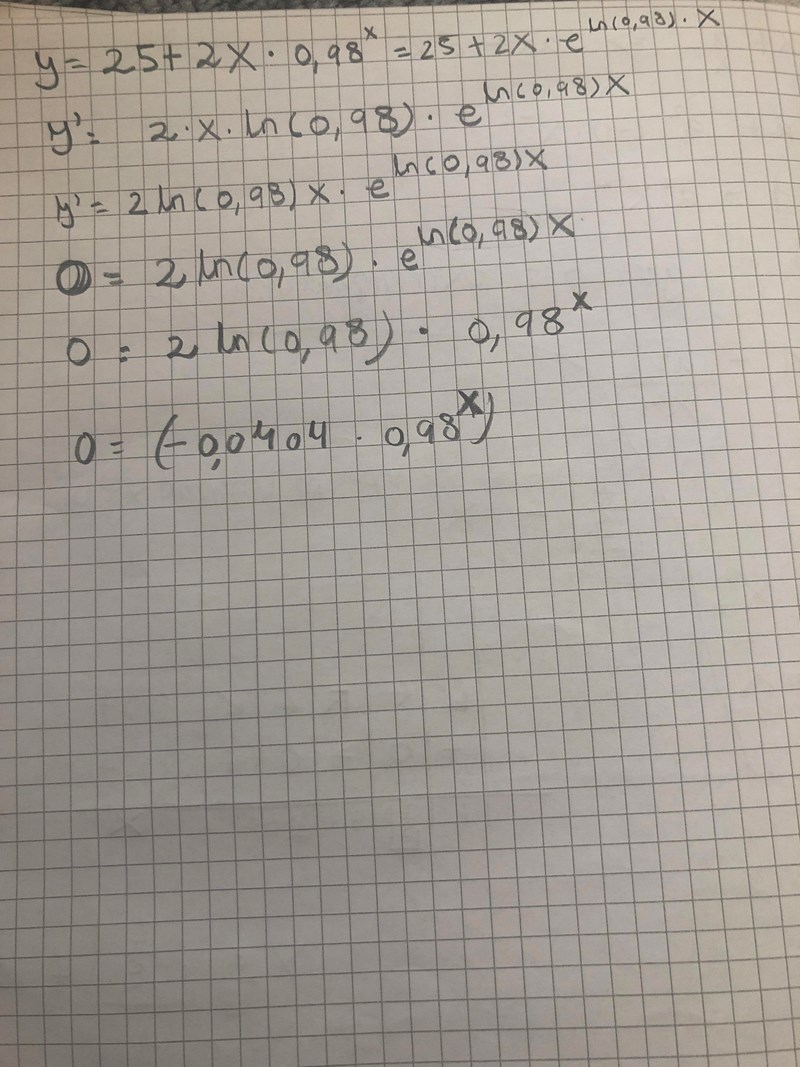 y = 25 + 2x · 0,98^x = 25 + 2x · e^ln(0,98) · x
y' = 2 · x · ln(0,98) · e^ln(0,98)x
y' = 2 ln(0,98) x · e^ln(0,98)x
0 = 2 ln(0,98) · e^ln(0,98)x
0 = 2 ln(0,98) · 0,98^x
0 = (-0,0404 · 0,98^x)